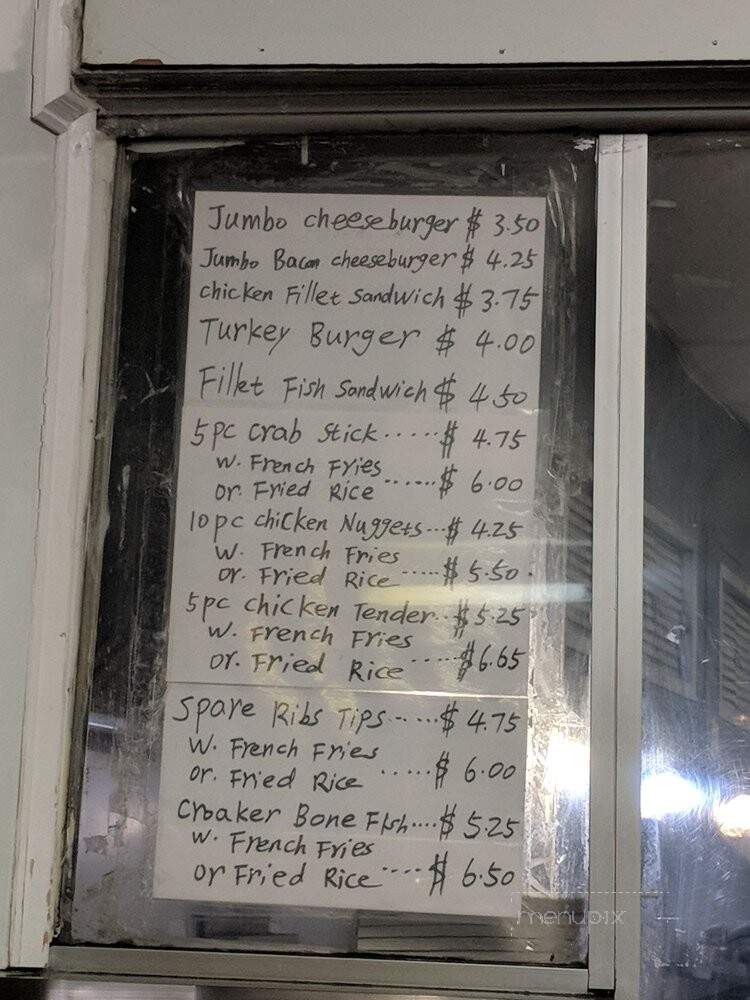 Jumbo cheeseburger $ 3.50
Jumbo Bacon cheeseburger $ 4.25
chicken Fillet Sandwich $ 3.75
Turkey Burger $ 4.00
Fillet Fish Sandwich $ 4.50
5pc crab stick ..... $ 4.75
w. French Fries
or. Fried Rice ...... $ 6.00
10pc chicken Nuggets ... $ 4.25
w. French Fries
or. Fried Rice ..... $ 5.50
5pc chicken Tender .. $ 5.25
w. French Fries
or. Fried Rice ..... $ 6.65
Spare Ribs Tips ..... $ 4.75
w. French Fries
or. Fried Rice ..... $ 6.00
Croaker Bone Fish .... $ 5.25
w. French Fries
or Fried Rice .... $ 6.50
menupix